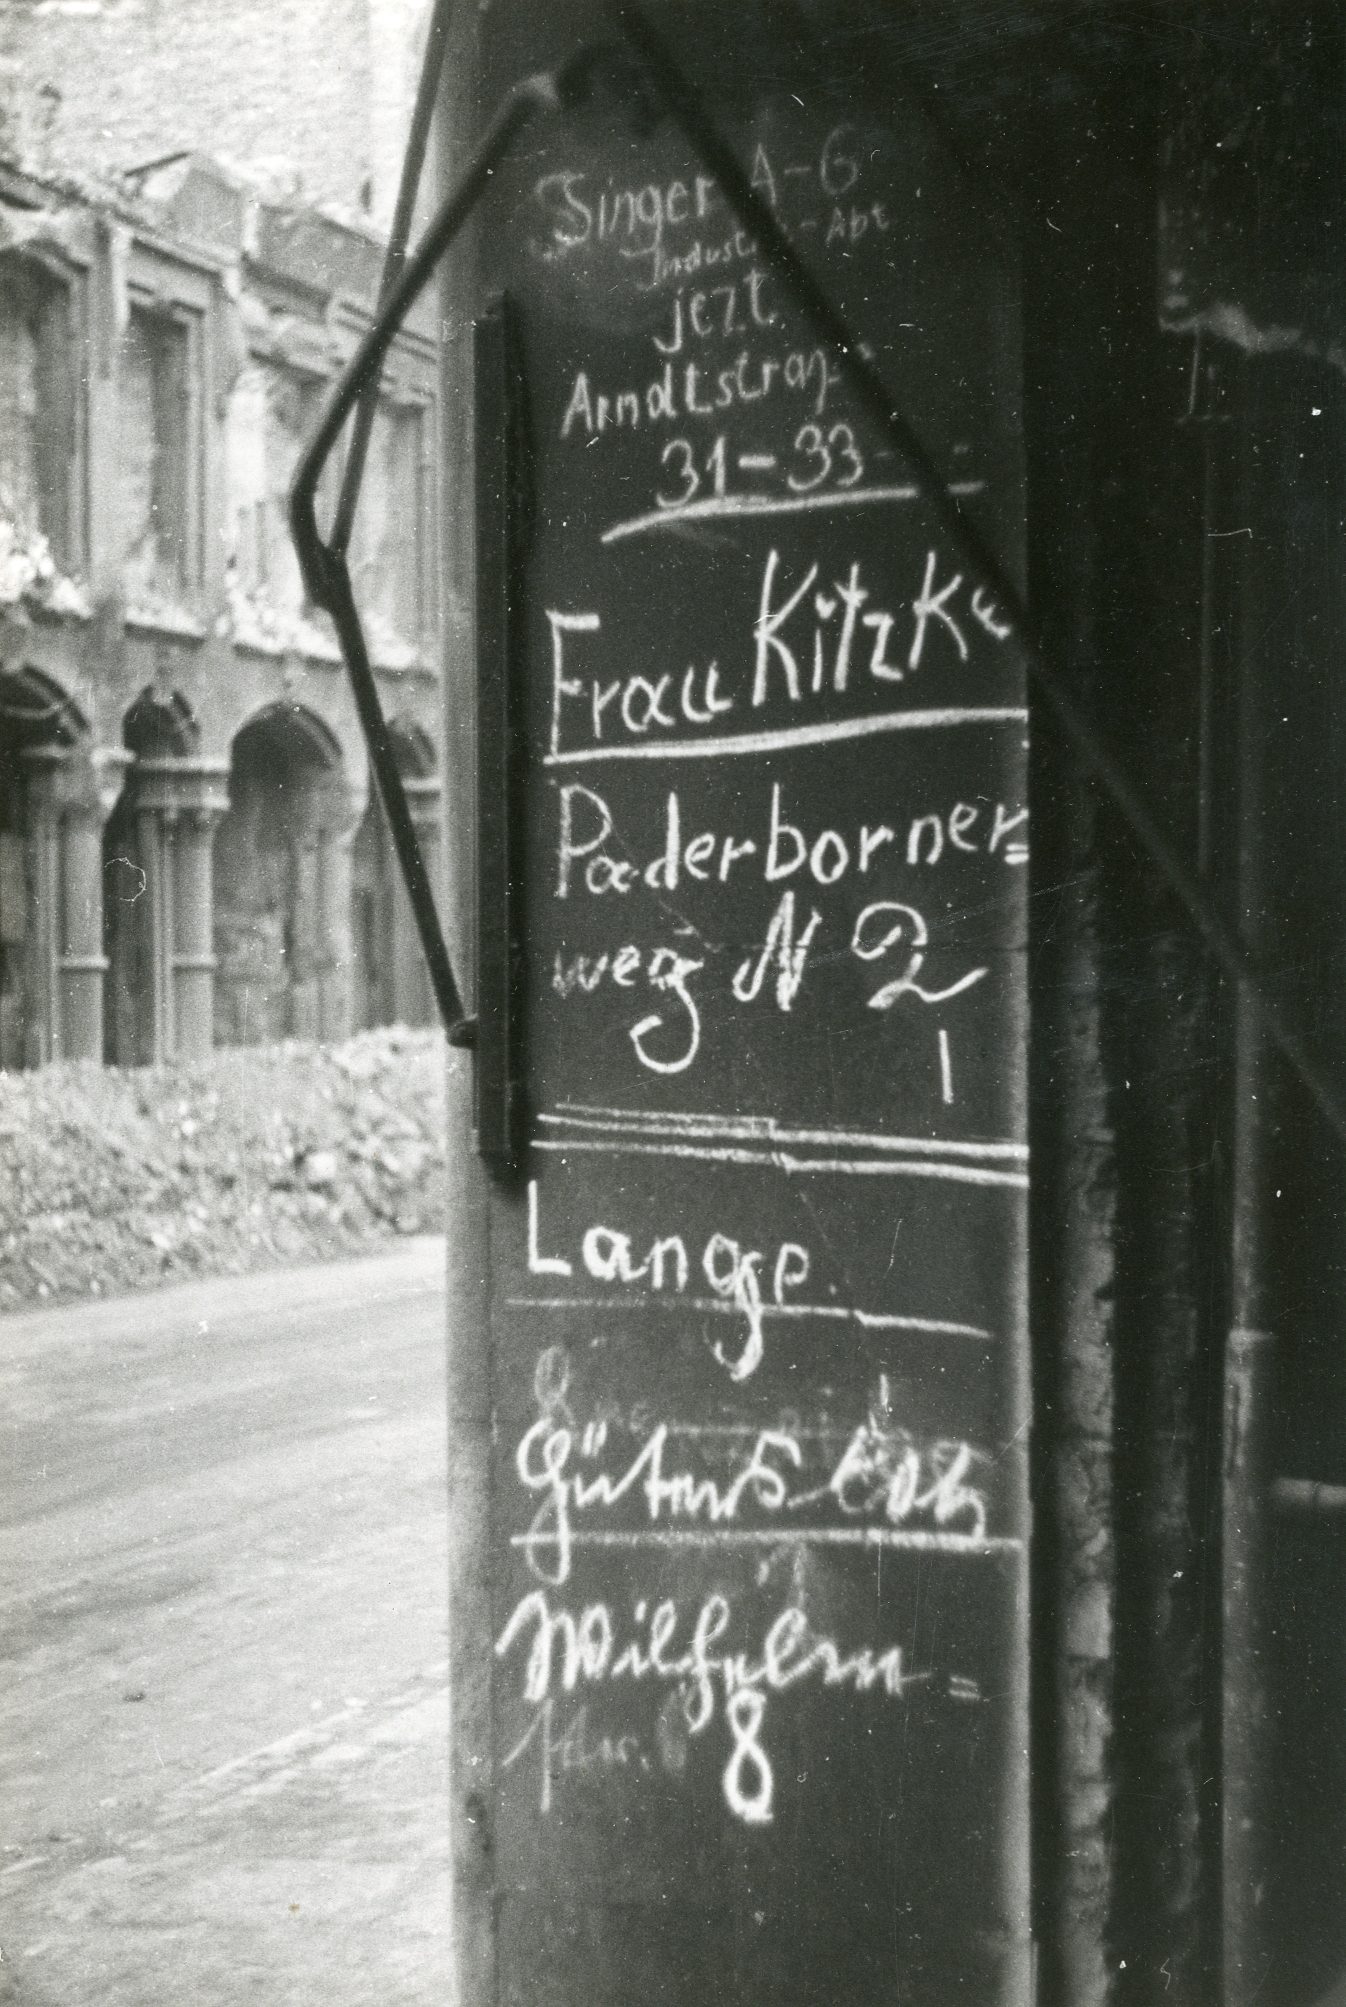 Singer A-G
Industrie-Abt
jezt
Arndtstraß
31-33
Frau Kitzke
Paderborner=
weg N 2
1
Lange
Gütersloh
Wilhelm=
Str. 8